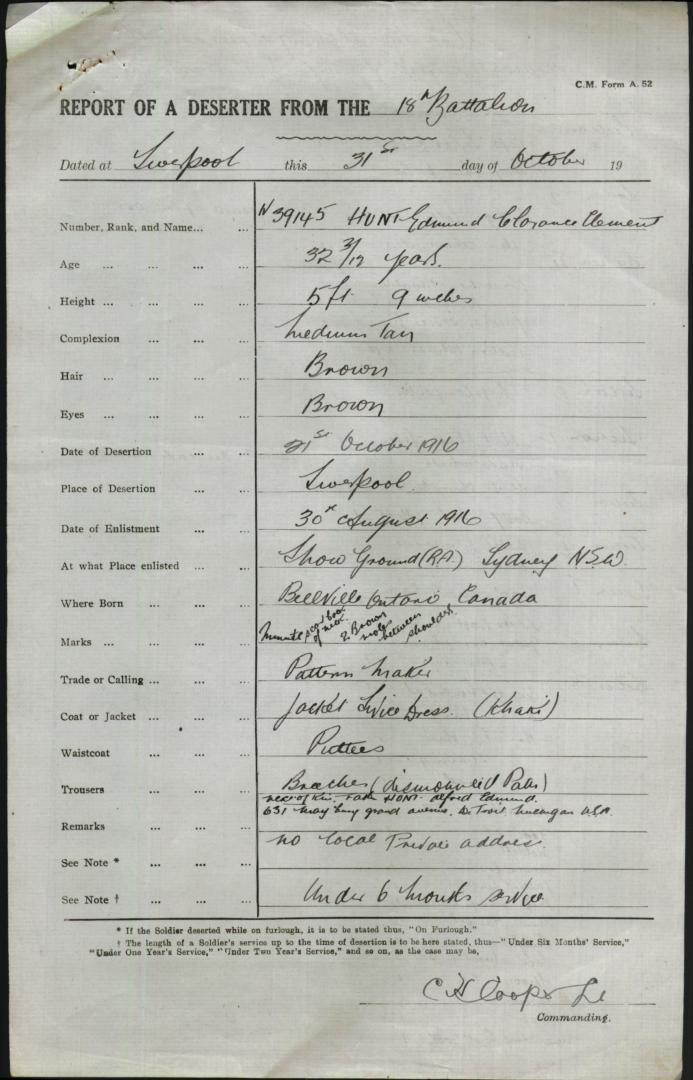 C.M. Form A. 52
REPORT OF A DESERTER FROM THE 18th Battalion
Dated at Liverpool this 31st day of October 19
Number, Rank, and Name... ... N39145 HUNT Edmund Clarance Clement
Age ... ... ... ... 32 3/12 years.
Height ... ... ... ... 5 ft 9 inches
Complexion ... ... ... Medium Tan
Hair ... ... ... ... Brown
Eyes ... ... ... ... Brown
Date of Desertion ... ... 21st October 1916
Place of Desertion ... ... Liverpool.
Date of Enlistment ... ... 30th August 1916
At what Place enlisted ... ... Show Ground (R.A.) Sydney N.S.W.
Where Born ... ... Bellville Ontario Canada
Marks ... ... ... ... Minute scar back of neck 2 Brown moles between shoulders
Trade or Calling ... ... ... Pattern Maker
Coat or Jacket ... ... ... Jacket Service Dress. (Khaki)
Waistcoat ... ... ... Puttees
Trousers ... ... ... Breeches (dismounted Patt)
next of Kin, Father HUNT. Alfred Edmund.
631 grand avenue, Detroit U.S.A.
Remarks ... ... ... no local Private address.
See Note * ... ... ...
See Note † ... ... ... Under 6 Months service
* If the Soldier deserted while on furlough, it is to be stated thus, "On Furlough."
† The length of a Soldier's service up to the time of desertion is to be here stated, thus—"Under Six Months' Service,"
"Under One Year's Service," "Under Two Year's Service," and so on, as the case may be,
C H Cooper Lt
Commanding.